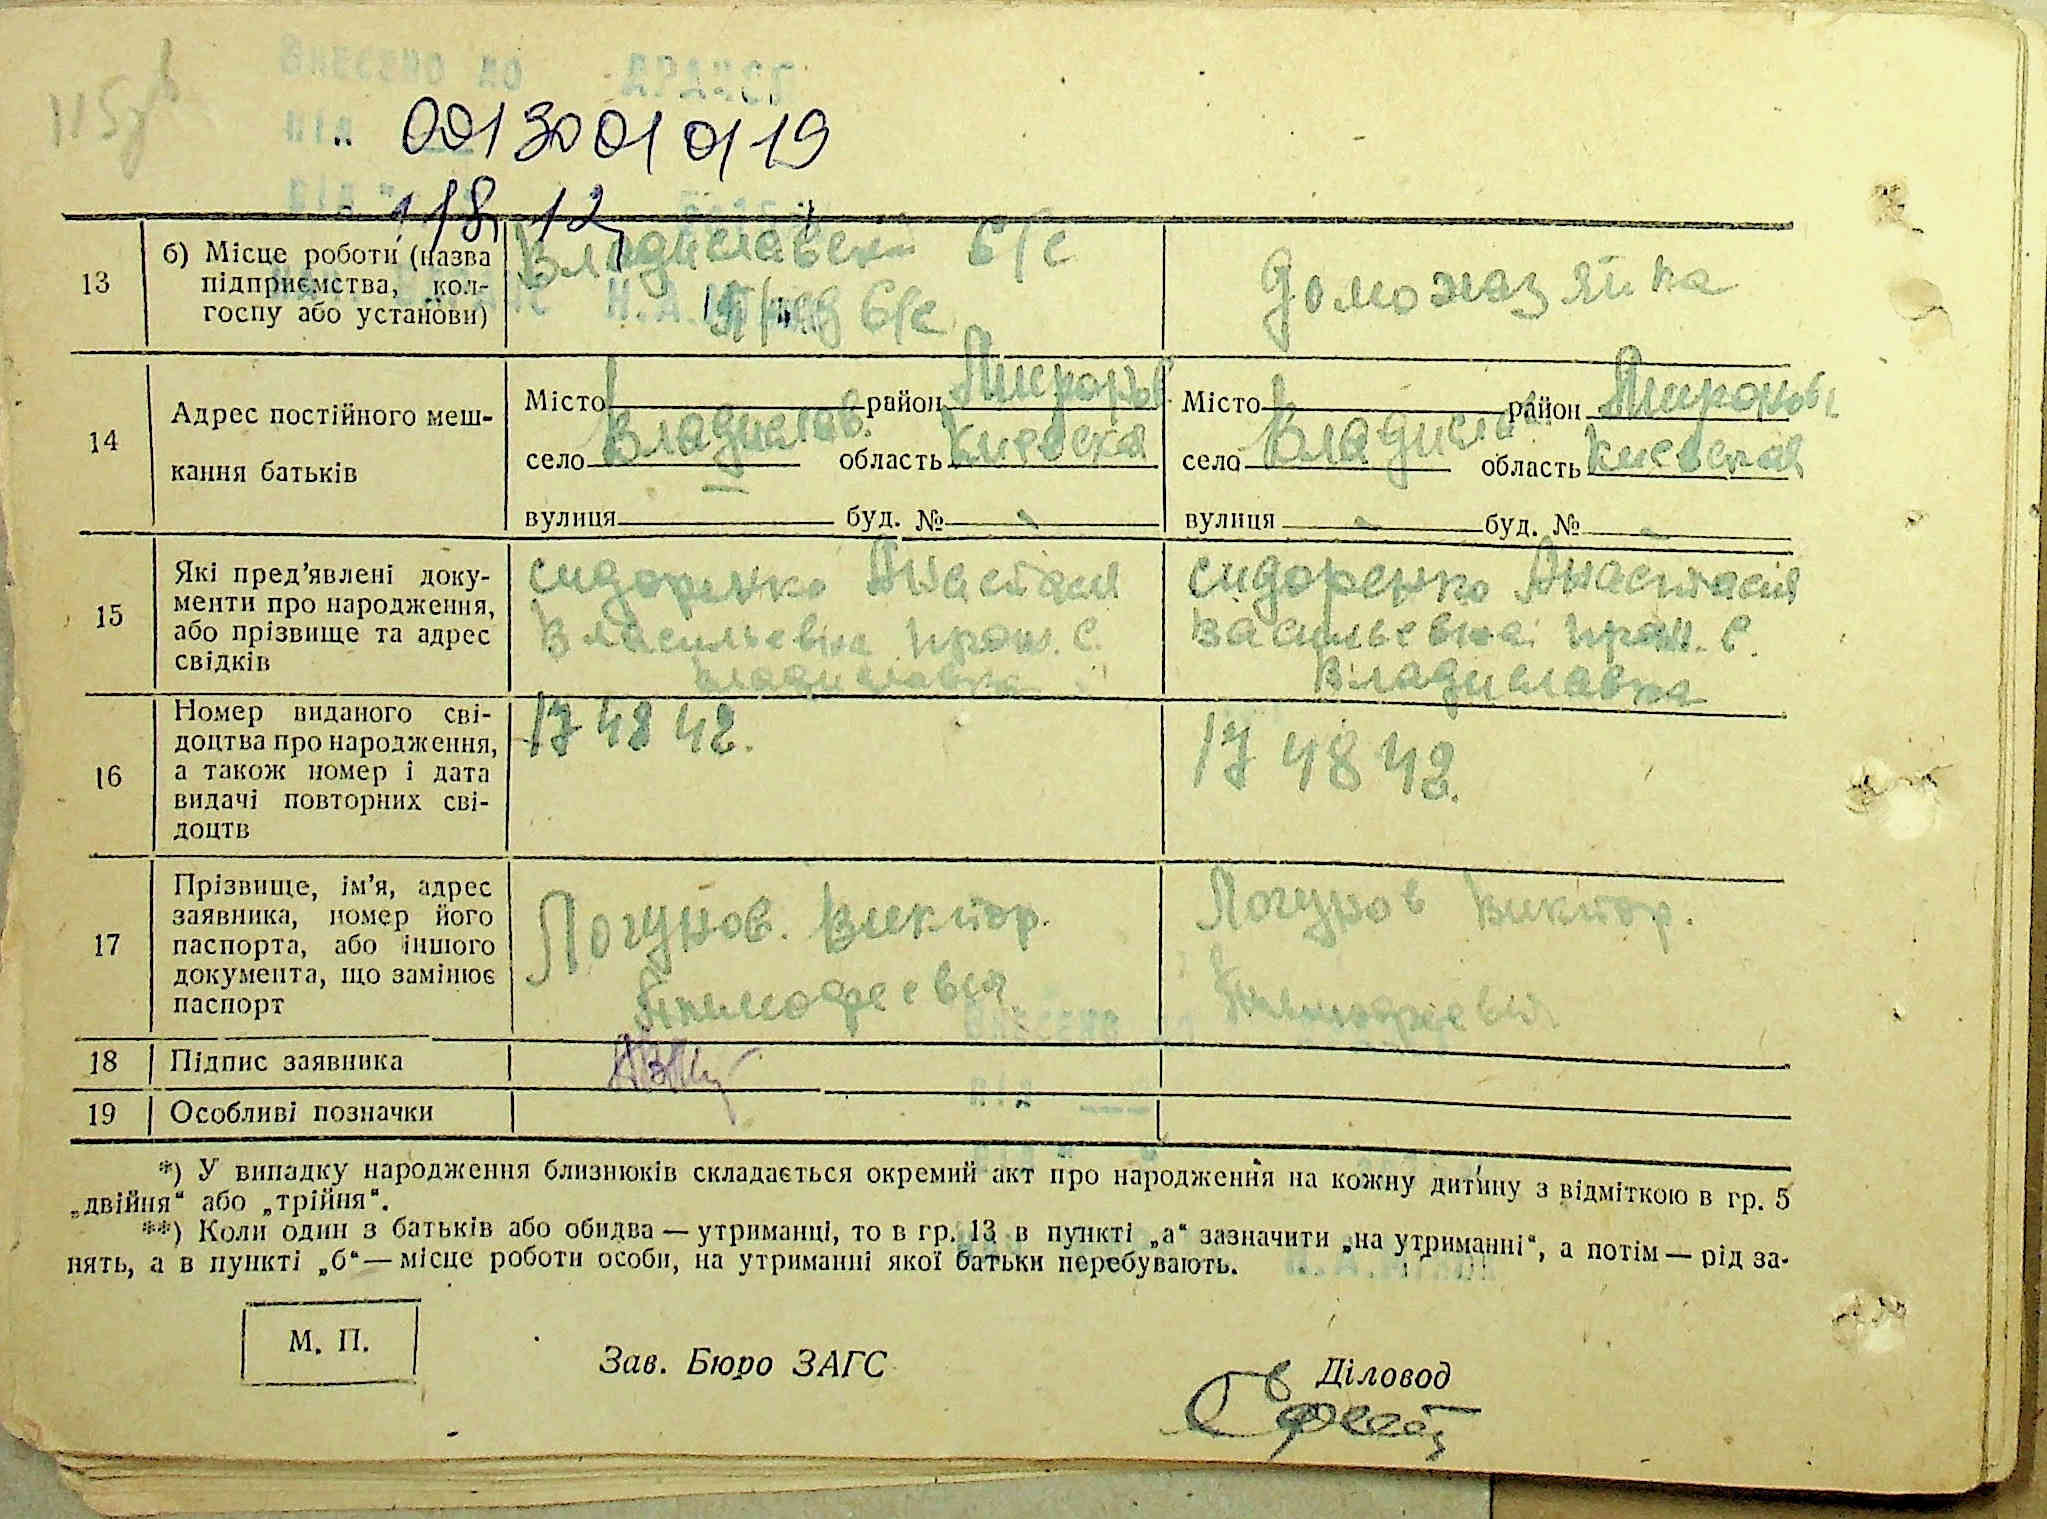 Внесено до ДРАЦСГ
115
від
00130010119
18, 12,
13
б) Місце роботи (назва підприємства, колгоспу або установи)
Владиславска с/с
с/с
домохазяйка
14
Адрес постійного мешкання батьків
Місто район Миронов
село Владислав. область Киевская
вулиця буд. №
Місто район Миронов
село Владислав область Киевская
вулиця буд. №
15
Які пред'явлені документи про народження, або прізвище та адрес свідків
Сидоренко Анастасия
Власильевна прож. с.
Владиславка
Сидоренко Анастасия
Васильевна прож. с.
Владиславка
16
Номер виданого свідоцтва про народження, а також номер і дата видачі повторних свідоцтв
174842.
174842.
17
Прізвище, ім'я, адрес заявника, номер його паспорта, або іншого документа, що замінює паспорт
Логунов. Виктор.
Тимофеевич
Логунов Виктор.
Тимофеевич
18 Підпис заявника
19 Особливі позначки
*) У випадку народження близнюків складається окремий акт про народження на кожну дитину з відміткою в гр. 5
„двійня“ або „трійня“.
**) Коли один з батьків або обидва — утриманці, то в гр. 13 в пункті „а“ зазначити „на утриманні“, а потім — рід за-
нять, а в пункті „б“ — місце роботи особи, на утриманні якої батьки перебувають.
М. П.
Зав. Бюро ЗАГС
Діловод